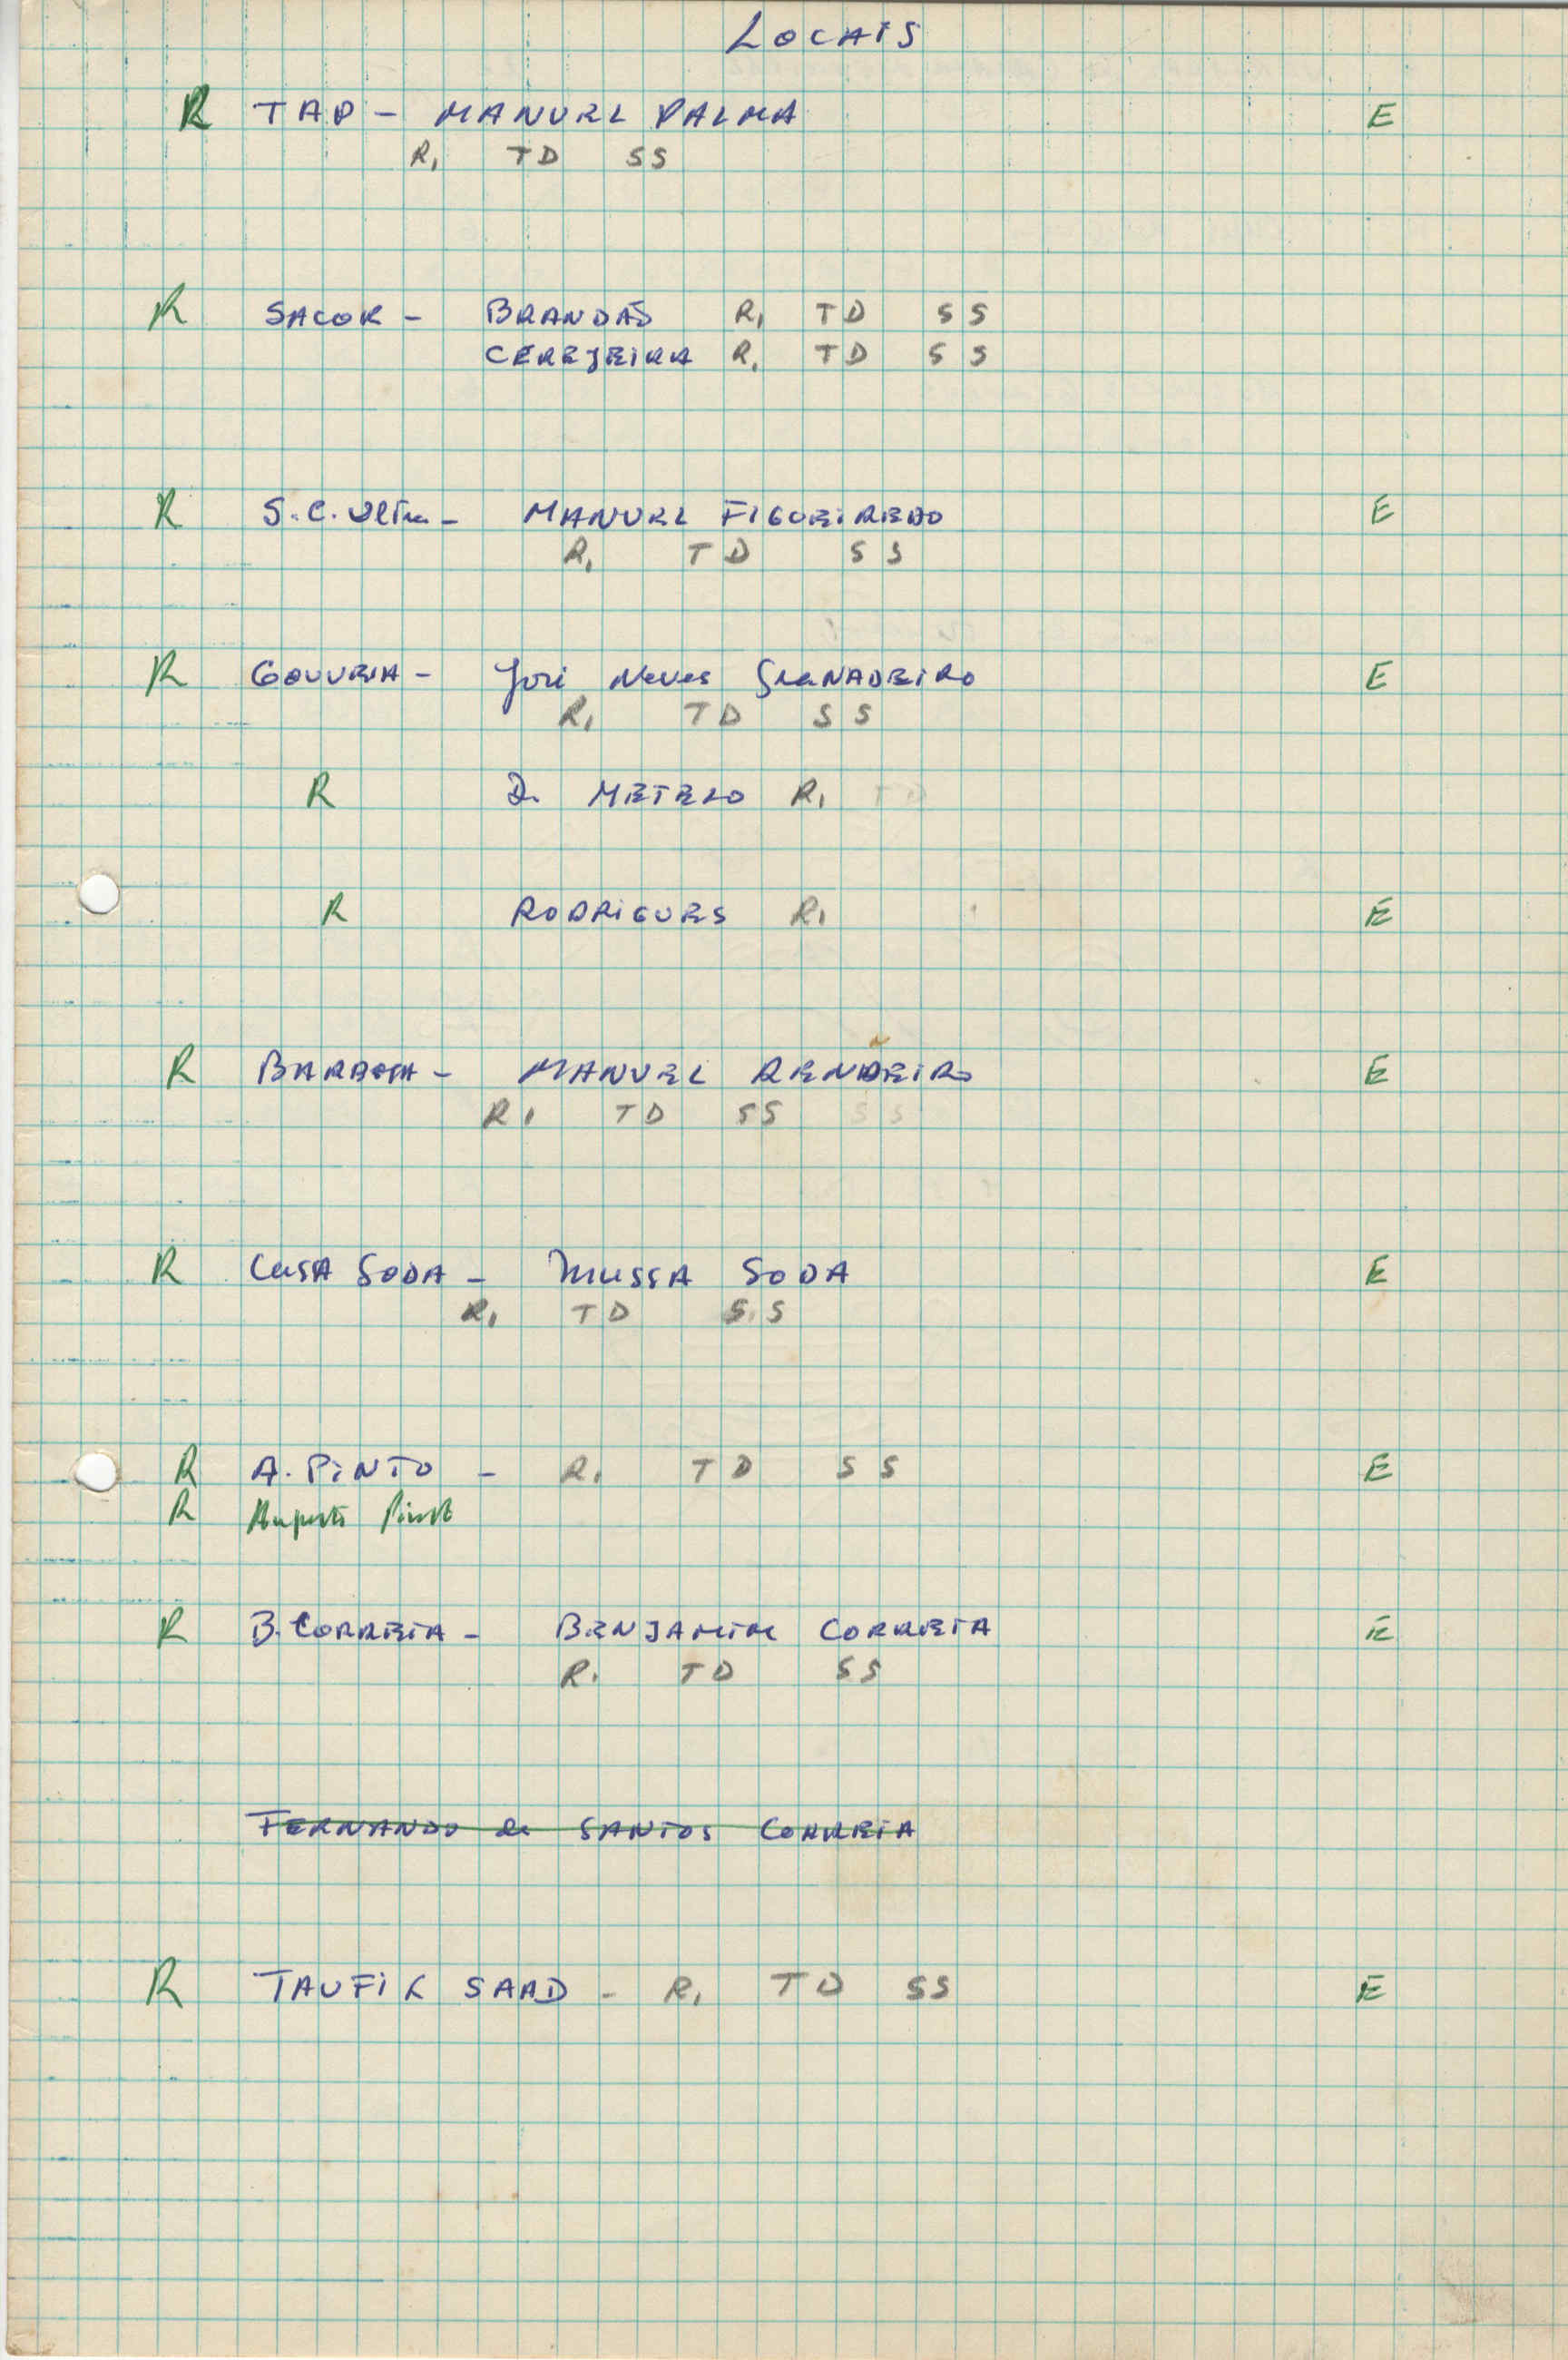 LOCAIS
R TAP - MANUEL PALMA E
R, TD SS
R SACOR - BRANDÃO R, TD SS
CEREJEIRA R, TD SS
R S.C. Ultra - MANUEL FIGUEIREDO E
R, TD SS
R GOUVEIA - José Neves GRANADEIRO E
R, TD SS
R D. METELO R, TD
R RODRIGUES R, E
R BARBOSA - MANUEL RENDEIRO E
R, TD SS SS
R CASA SODA - MUSSA SODA E
R, TD SS
R A. PINTO - R, TD SS E
R Augusto Pinto
R B. CORREIA - BENJAMIM CORREIA E
R, TD SS
FERNANDO de SANTOS CORREIA
R TAUFIK SAAD - R, TD SS E